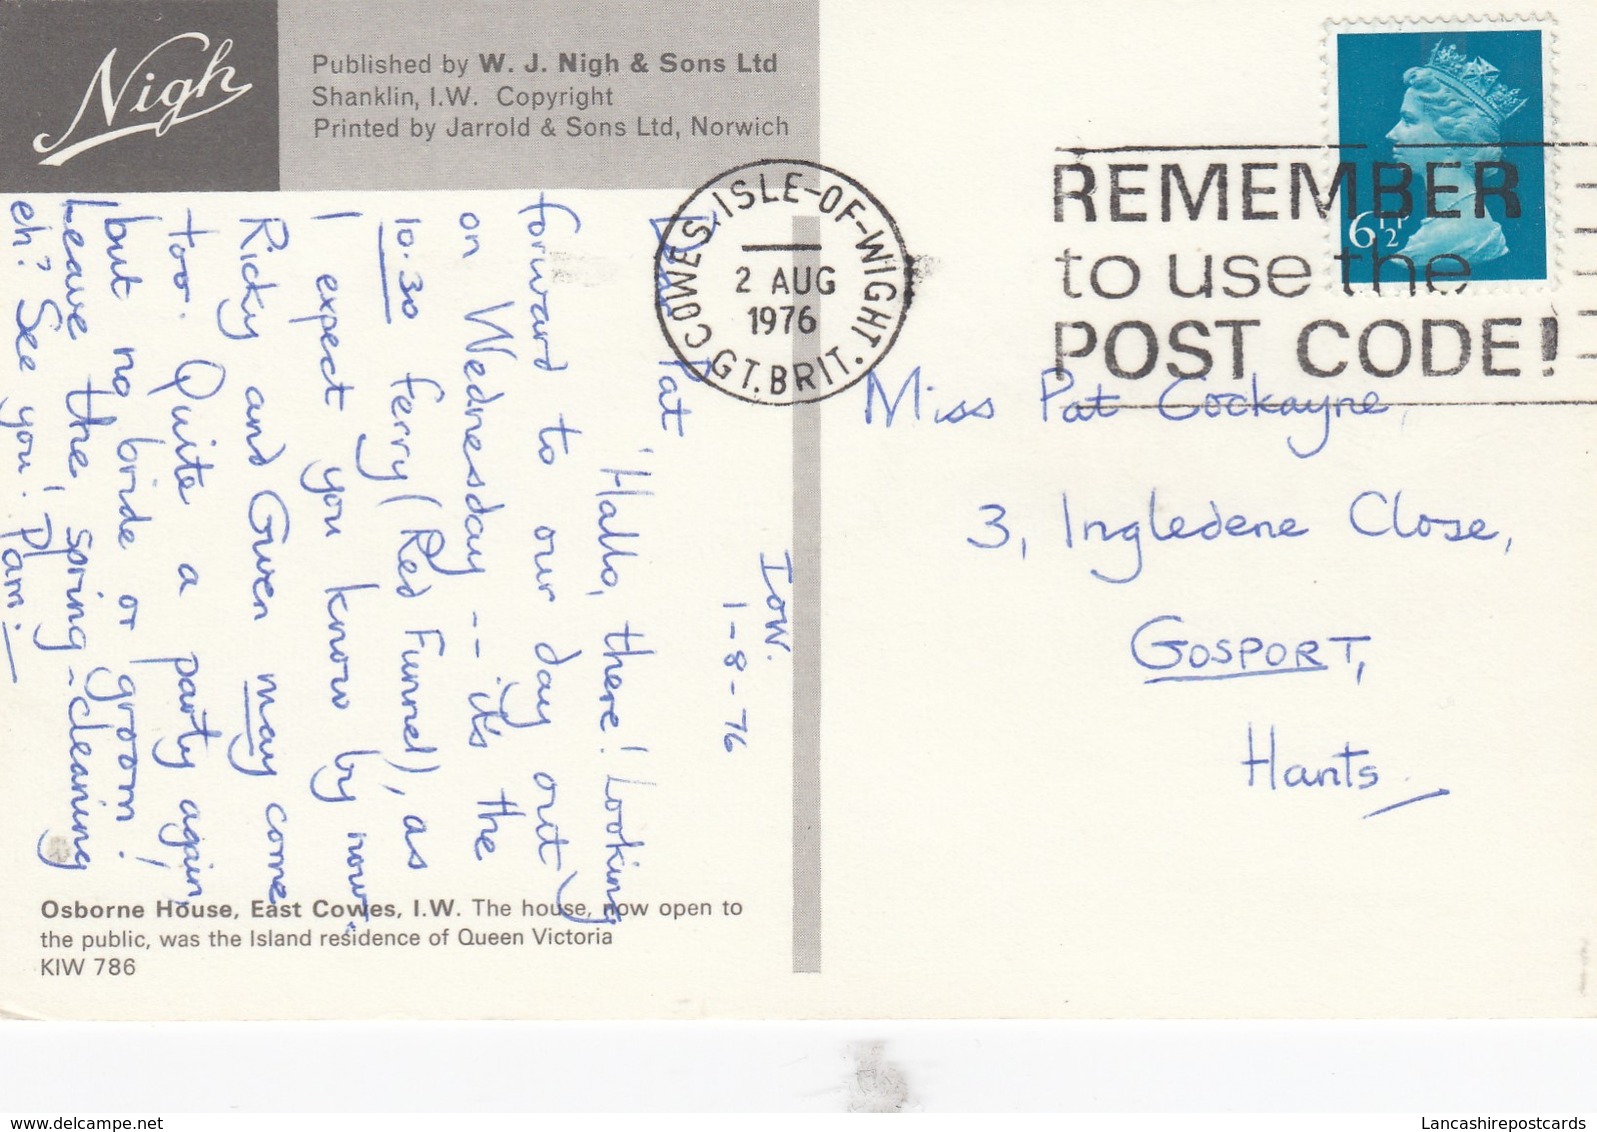 Nigh
Published by W. J. Nigh & Sons Ltd
Shanklin, I.W. Copyright
Printed by Jarrold & Sons Ltd, Norwich
COWES, ISLE-OF-WIGHT.
2 AUG
1976
GT. BRIT.
REMEMBER
to use the
POST CODE!
6½P
IOW.
1-8-76
Dear Pat
'Hallo, there! Looking
forward to our day out
on Wednesday -- it's the
10.30 ferry (Red Funnel), as
I expect you know by now,
Ricky and Gwen may come
too. Quite a party again,
but no bride or groom!
Leave the spring-cleaning
eh? See you. Pam.
Miss Pat Cockayne,
3, Ingledene Close,
GOSPORT,
Hants
Osborne House, East Cowes, I.W. The house, now open to
the public, was the Island residence of Queen Victoria
KIW 786
Lancashirepostcards